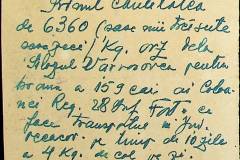 Primit cantitatea
de 6360 (șase mii trei sute
șase zeci) Kg. orz dela
pentru
hrana a 159 cai ai Coloa-
nei Reg. 28 Inf. ce
face transportul
pe timp de 10 zile
a 4 Kg. de cal pe zi.